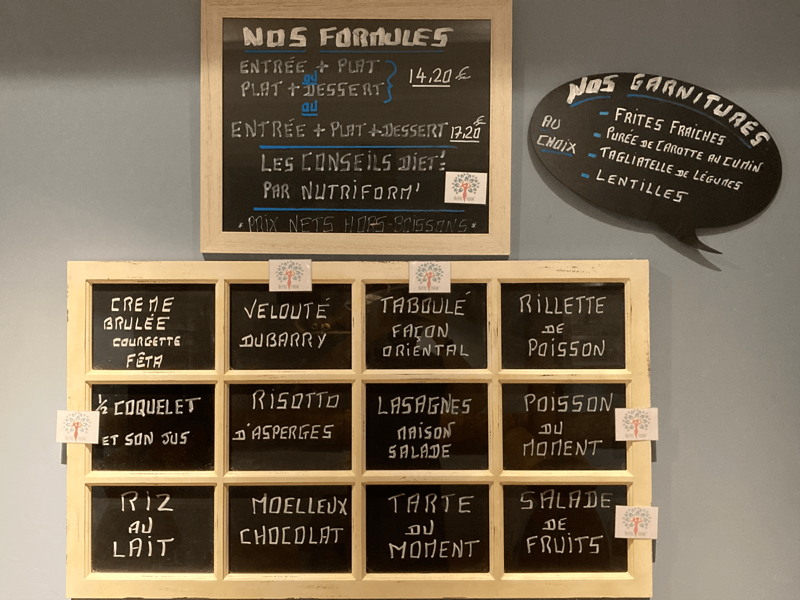 NOS FORMULES
ENTRÉE + PLAT
OU
PLAT + DESSERT
14,20 €
OU
ENTRÉE + PLAT + DESSERT 17.20 €
LES CONSEILS DIET!
PAR NUTRIFORM'
*PRIX NETS HORS-BOISSONS*
NOS GARNITURES
AU
CHOIX
- FRITES FRAICHES
- PURÉE DE CAROTTE AU CUMIN
- TAGLIATELLE DE LÉGUMES
- LENTILLES
CREME
BRULÉE
COURGETTE
FÊTA
VELOUTÉ
DUBARRY
TABOULÉ
FAÇON
ORIENTAL
RILLETTE
DE
POISSON
½ COQUELET
ET SON JUS
RISOTTO
D'ASPERGES
LASAGNES
MAISON
SALADE
POISSON
DU
MOMENT
RIZ
AU
LAIT
MOELLEUX
CHOCOLAT
TARTE
DU
MOMENT
SALADE
DE
FRUITS